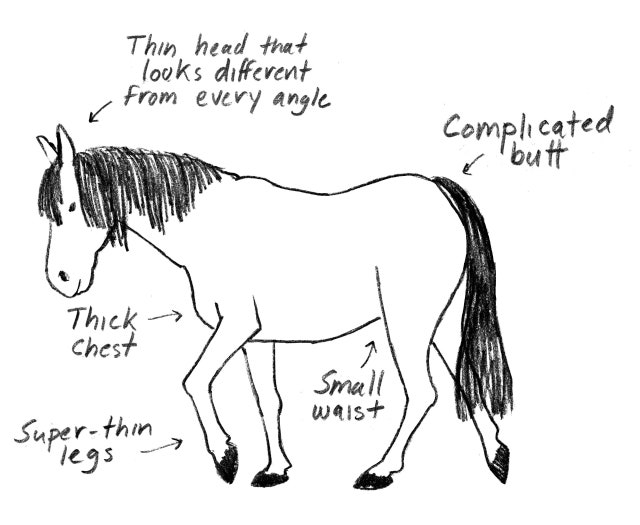 Thin head that
looks different
from every angle
Complicated
butt
Thick
chest
Small
waist
Super-thin
legs